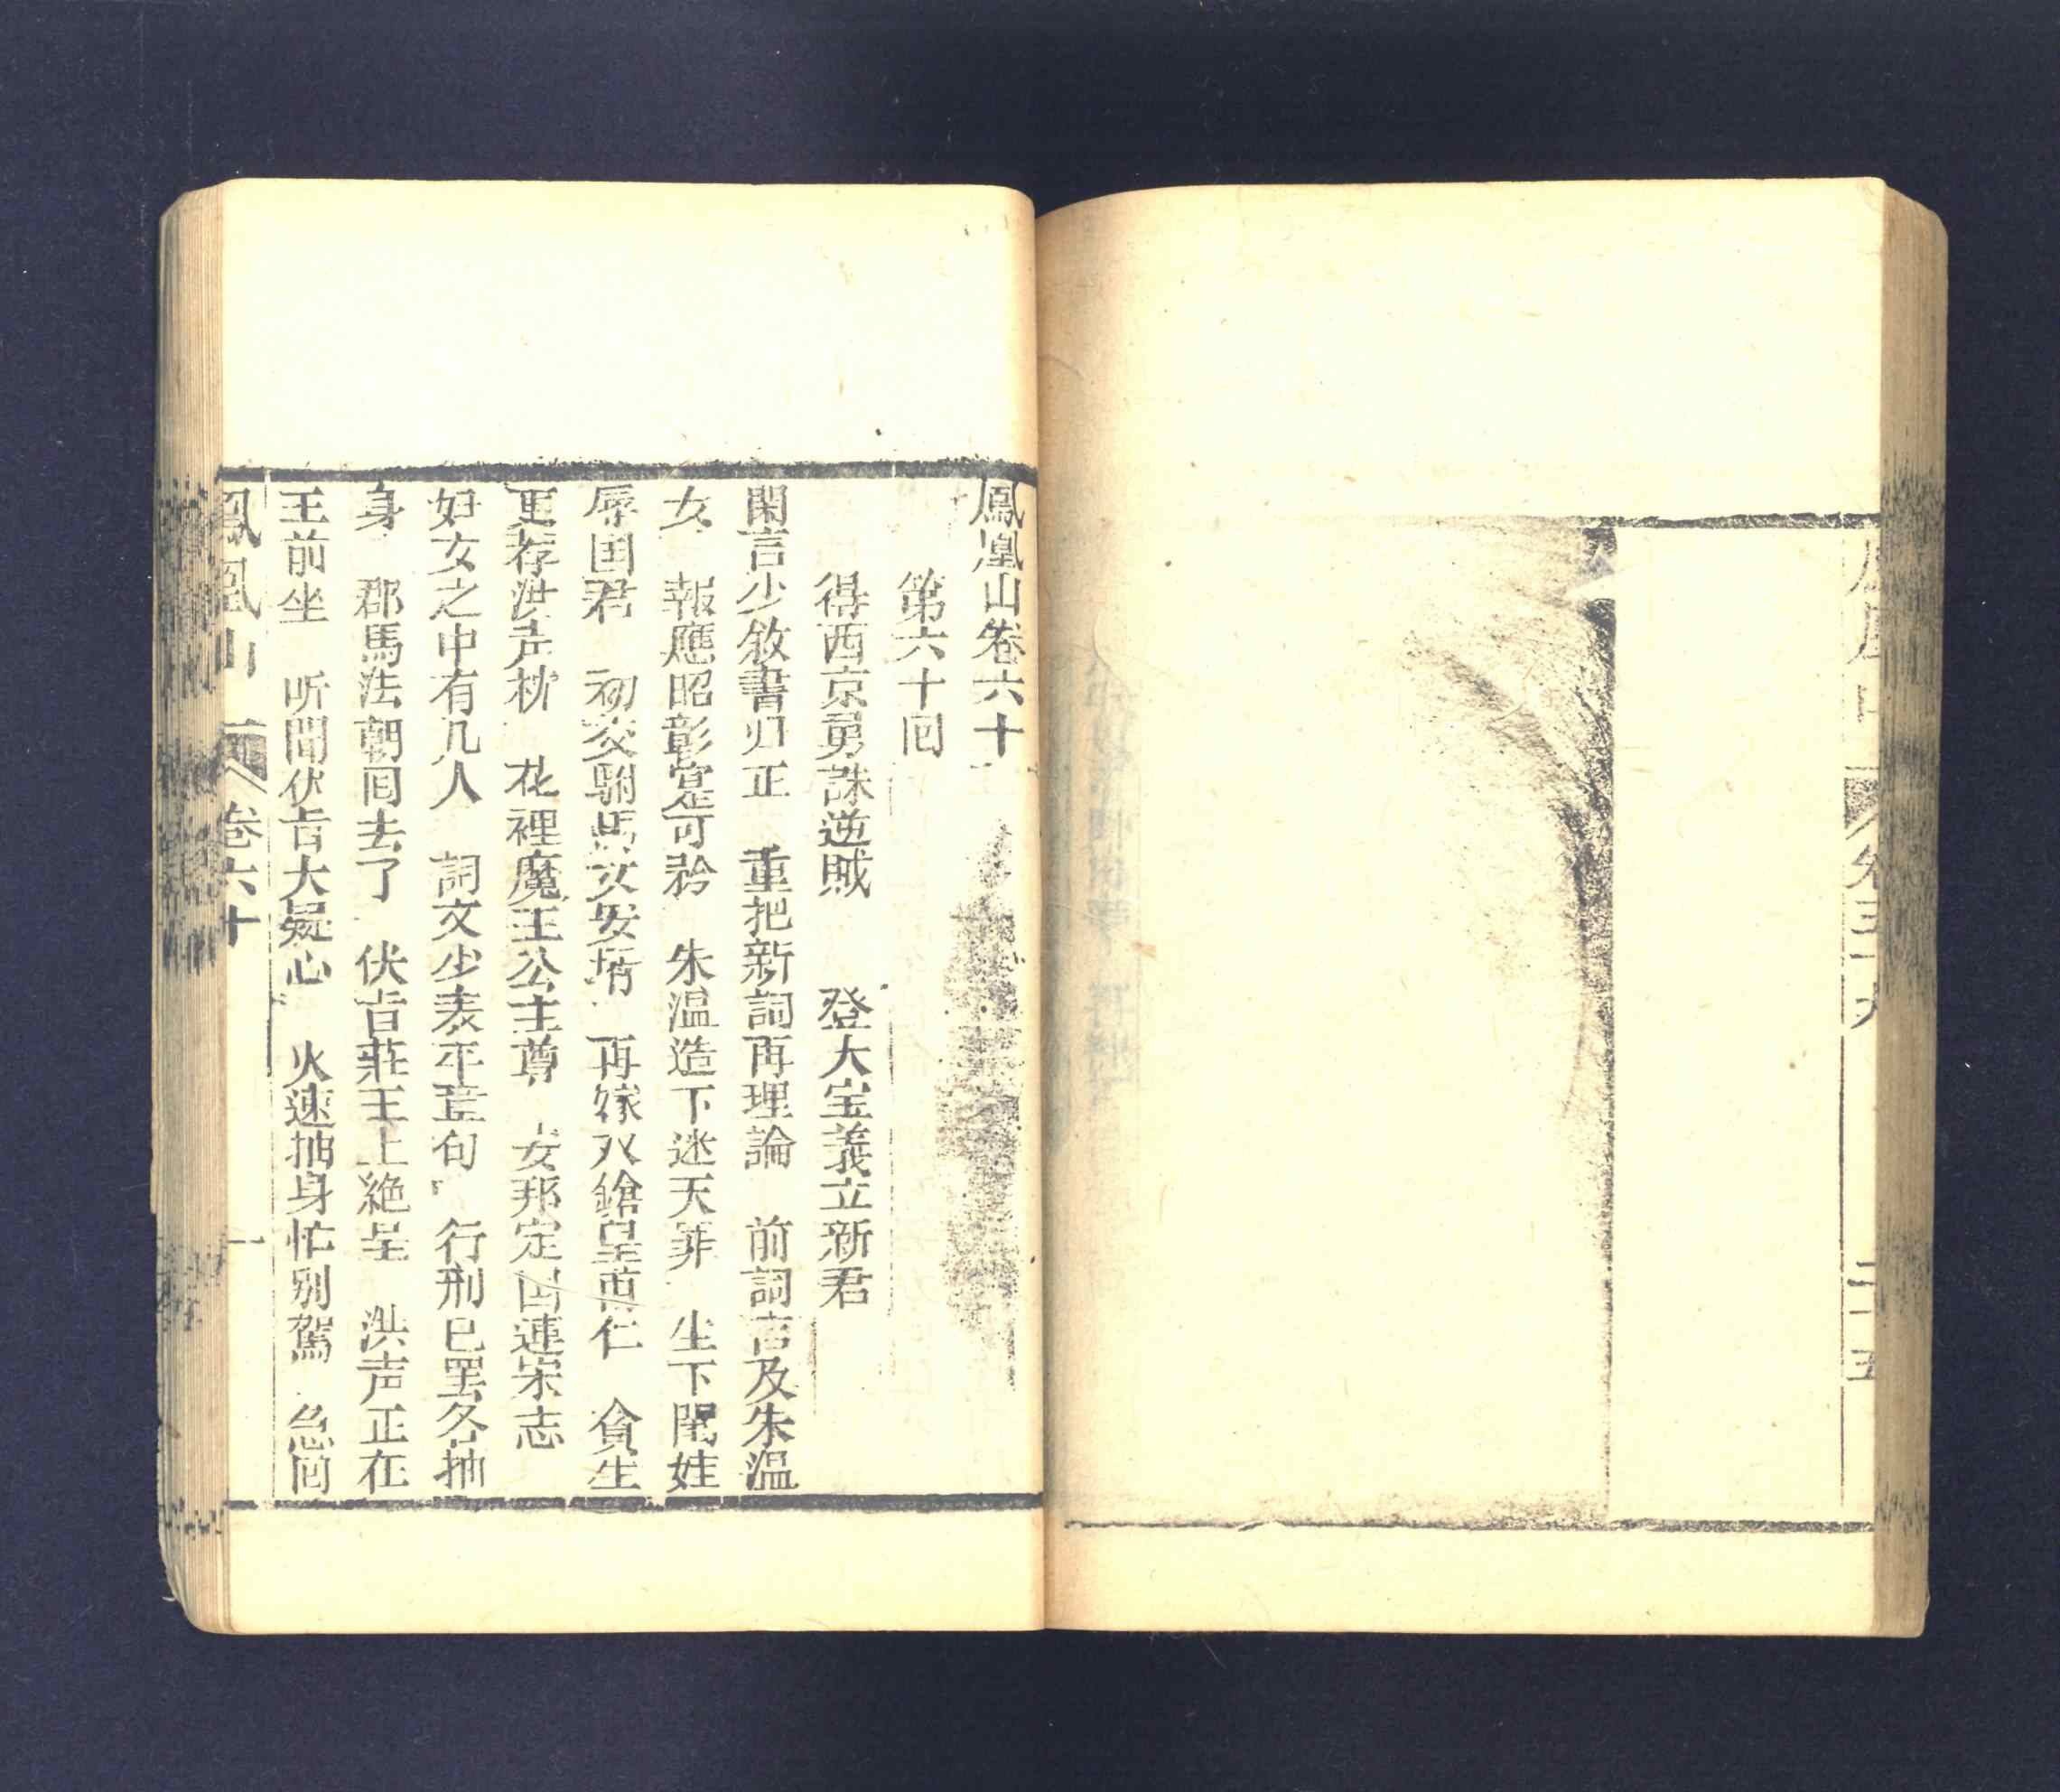 二十五
鳳凰山卷六十
第六十回
得西京勇誅逆賊 登大宝義立新君
閑言少敘書归正 重把新詞再理論 前詞言及朱温
女 報應昭彰寔可矜 朱温造下迷天罪 生下閨娃
辱国君 初交駙馬文安壻 再嫁双鎗皇甫仁 貪生
更荐洪声枕 花裡魔王公主尊 女邦定国連宗志
妇女之中有几人 詞文少表平章句 行刑已罢各抽
身 郡馬法朝囘去了 伏吉莊王上絶呈 洪声正在
王前坐 听聞伏吉大疑心 火速抽身忙别駕 急囘
鳳凰山 卷六十 一